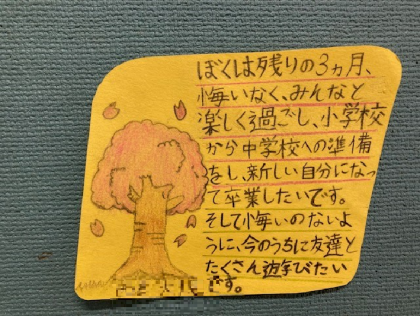 ぼくは残りの3ヵ月、
悔いなく、みんなと
楽しく過ごし、小学校
から中学校への準備
をし、新しい自分になっ
て卒業したいです。
そして悔いのないよ
うに、今のうちに友達と
たくさん遊びたい
です。